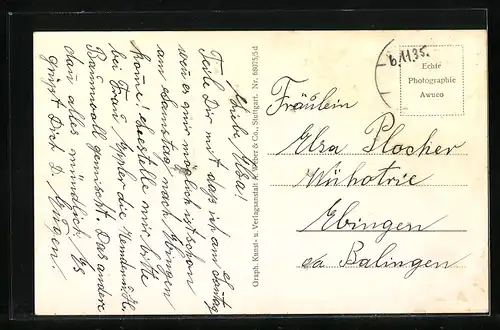 Liebe Elsa!
Teile Dir mit dass ich am Sonntag
wenn es mir möglich ist schon
am Samstag nach Ebingen
komme! Bestelle mir bitte
bei Frau Eppler die Hemden u.
Baumwoll gemischt Das andere
dann alles mündlich. Es
grüsst Dich D. Eugen.
Graph. Kunst- u. Verlagsanstalt & Co., Stuttgart. Nr. 68075/5d
6.11.35.
Echte
Photographie
Awuco
Fräulein
Elsa Plocher
Ebingen
Balingen